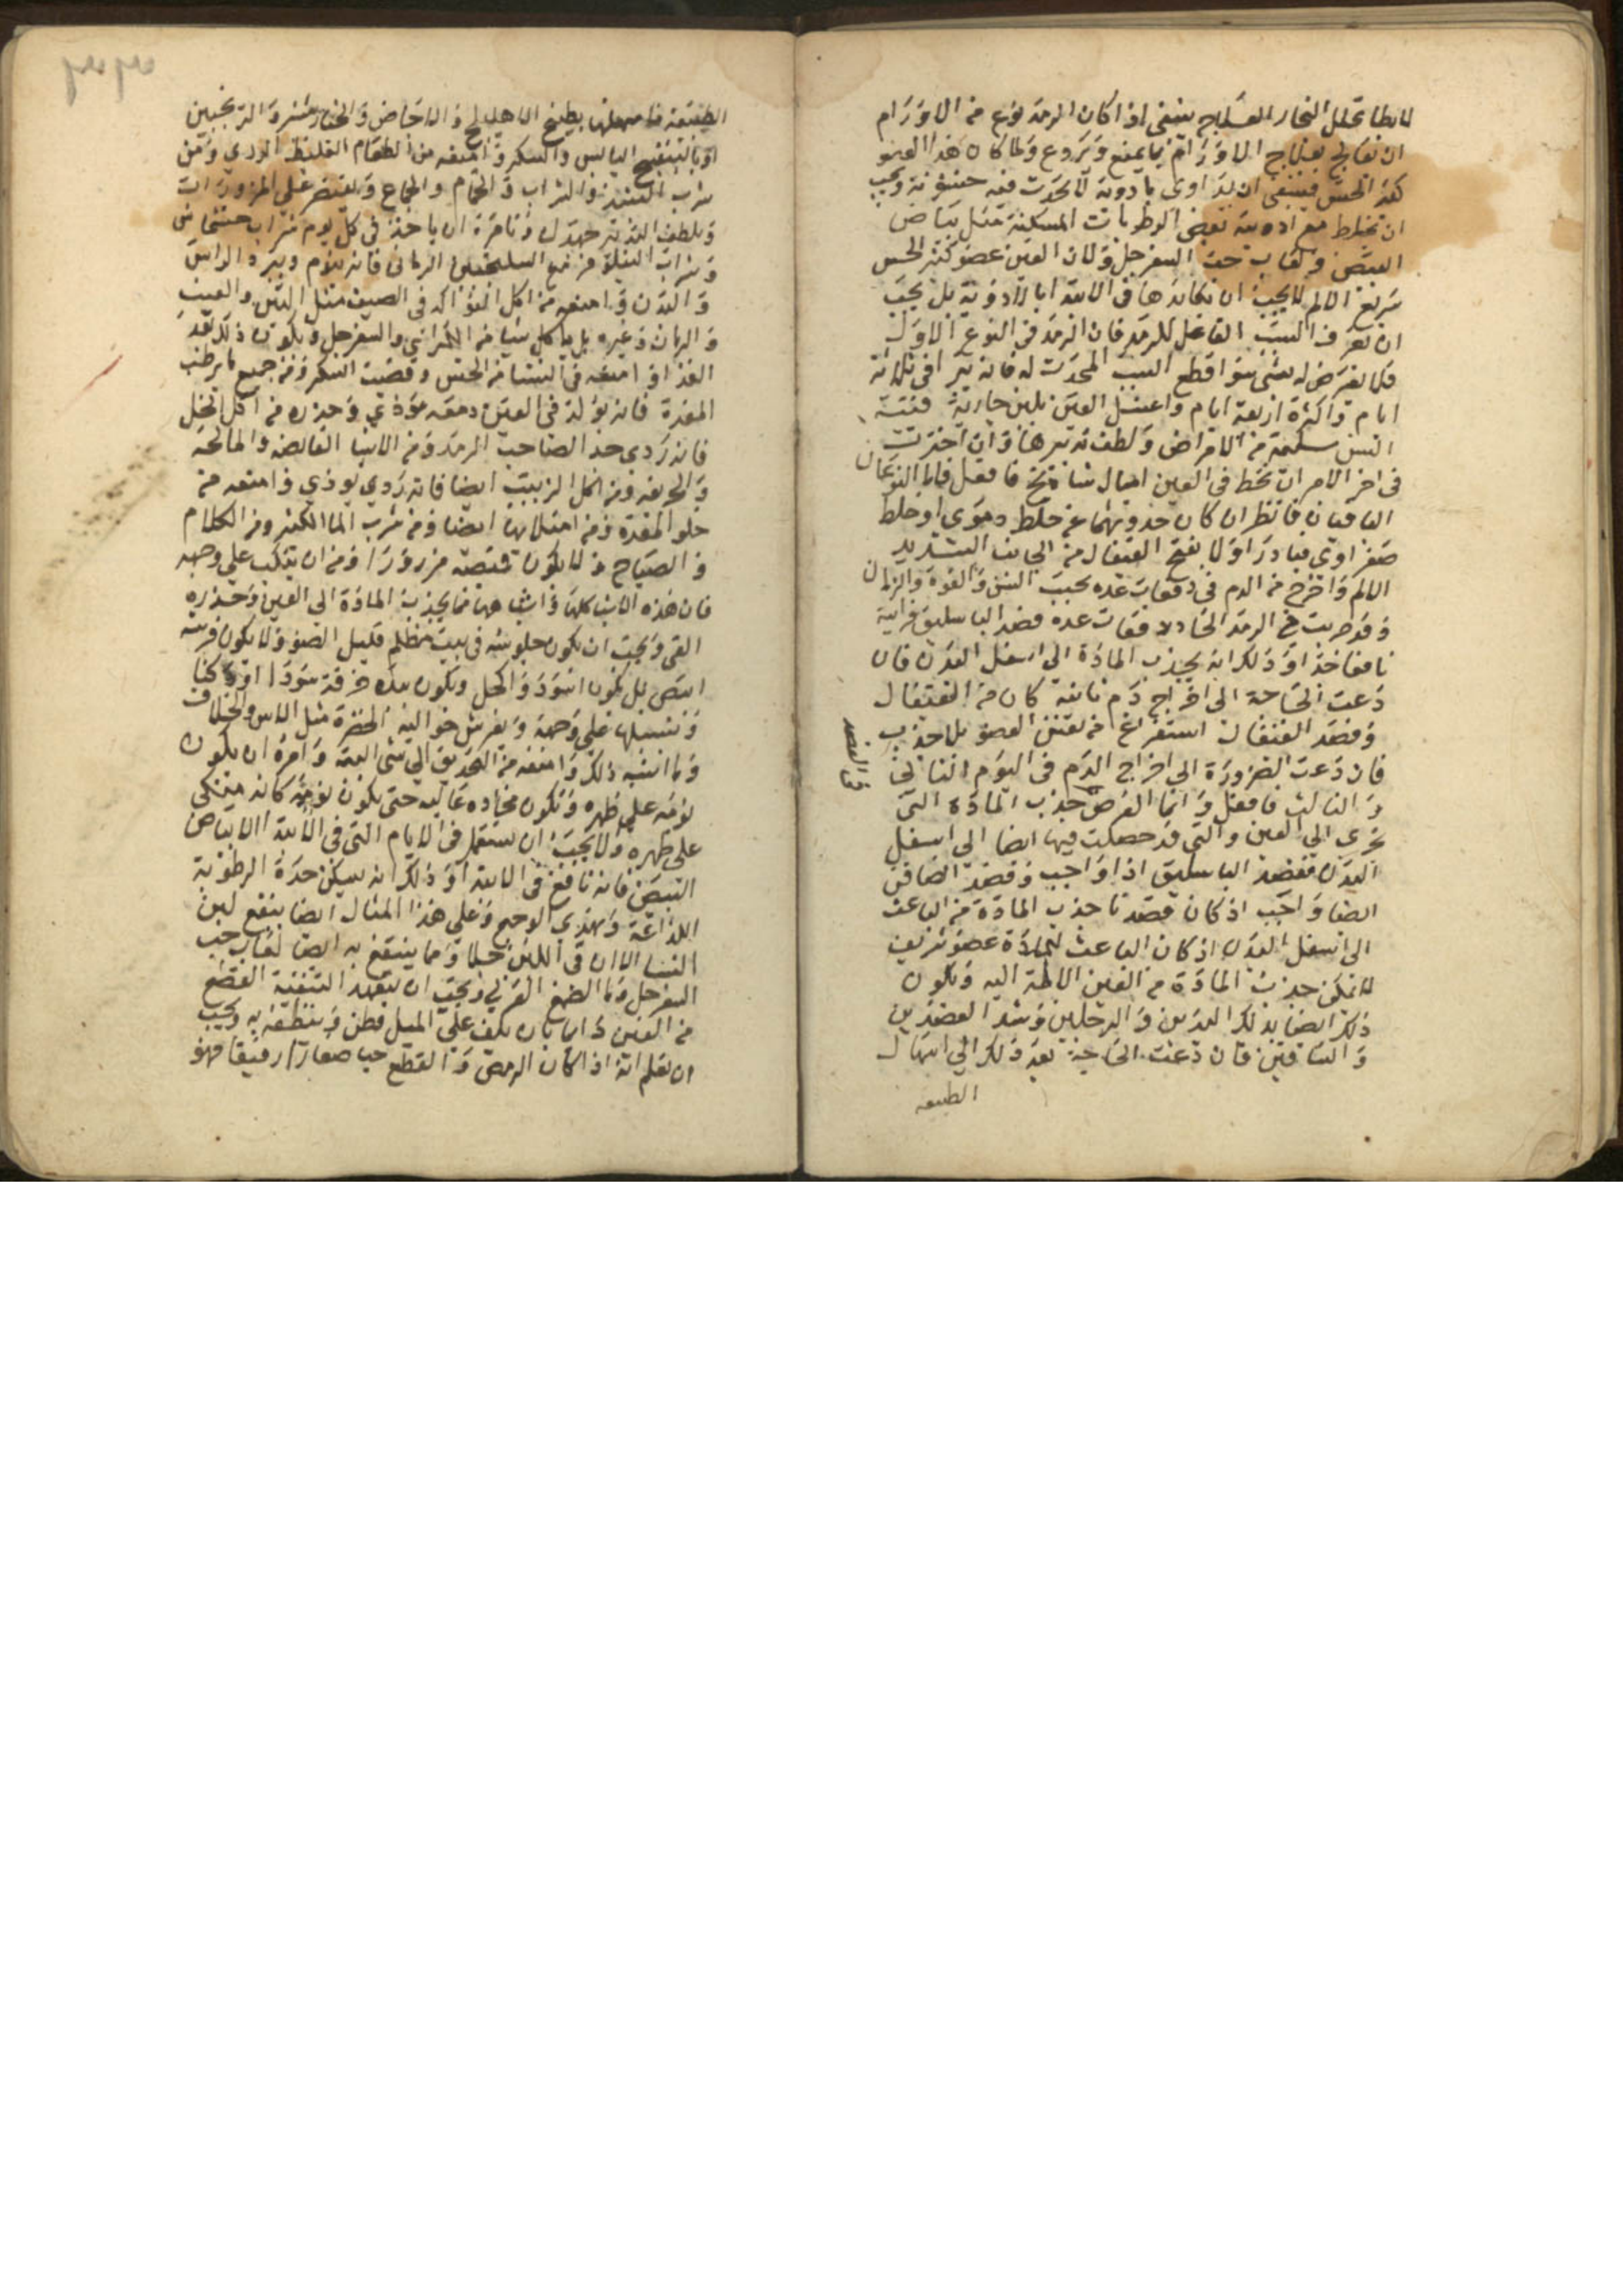 لانطا تحلل البخار العلاج ينبغي اذا كان الرمد نوع من الاورام
ان تعالج بعلاج الاورام بما يمنع ويروع ولما كان هذا العضو
كثير الحس فينبغي ان يداوى بادوية لا تحدث فيه خشونة ويجب
ان تخلط مع ادويته بعض الرطوبات المسكنة مثل بياض
البيض ولعاب حب السفرجل ولان العين عضو كثير الحس
سريع الالم لا يجب ان نكايدها في الابتدا بالادوية بل يجب
ان تعرف السبب الفاعل للرمد فان الرمد في النوع الاول
فلا تعرض له بشي سوا قطع السبب المحدث له فانه يبرا في ثلاثة
ايام واكثره اربعة ايام واغسل العين بلبن جارية فتية
السن سليمة من الامراض ولطف تدبيرها وان احترت
في اخر الامر ان تخط في العين اميال شادنج فافعل فاما النوعان
الباقيان فانظر ان كان حدوثهما عن خلط دموي او خلط
صفراوي فبادر اولا بفتح القيفال من الجانب الشديد
الالم واخرج من الدم في دفعات عده بحسب السن والقوة والزمان
وقد جربت في الرمد الحاد دفعات عده فصد الباسليق فرايته
نافعا جدا وذلك انه يجذب المادة الى اسفل البدن فان
دعت الحاجة الى اخراج دم ثانية كان من القيفال
وفصد القيفال استفراغ من نفس العضو بلا جذب
فان دعت الضرورة الى اخراج الدم في اليوم الثاني
والثالث فافعل وانما الغرض جذب المادة التي
تجري الى العين والتي قد حصلت فيها ايضا الى اسفل
البدن ففصد الباسليق اذا واجب وفصد الصافن
ايضا واجب اذ كان قصدنا جذب المادة من الباعث
الى اسفل البدن اذ كان الباعث للمادة عضو شريف
لا يمكن جذب المادة من العين الالمة اليه ويكون
ذلك ايضا بدلك اليدين والرجلين وشد العضدين
والساقين فان دعت الحاجة بعد ذلك الى اسهال
الطبيعه
الطبيعة فاسهلها بطبيخ الاهليلج والاجاص والخيارشنبر والترنجبين
او بالبنفسج اليابس والسكر وامنعه من الطعام الغليظ الردي ومن
شرب النبيذ والشراب والحمام والجماع ويقتصر على المزورات
وتلطف التدبير جهدك وتامره ان ياخذ في كل يوم شراب خشخاش
وشراب النيلوفر مع السكنجبين الرماني فانه ينوم ويبرد الراس
والبدن وامنعه من اكل الفواكه في الصيف مثل التين والعنب
والرمان وغيره بل ياكل شيا من الكمثرى والسفرجل ويكون ذلك بعد
الغذا وامنعه في الشتا من الخس وقصب السكر ومن جميع ما يرطب
المعدة فانه يولد في العين دمعه موذي وحذره من اكل الخل
فانه ردي جدا لصاحب الرمد ومن الاشيا القابضه والمالحه
والحريفه ومن اكل الزبيب ايضا فانه ردي يوذي وامنعه من
خلو المعدة ومن امتلائها ايضا ومن شرب الما الكثير ومن الكلام
والصياح ولا يكون قميصه مزرورا ومن ان يتكب على وجهه
فان هذه الاشيا كلها واشباهها مما يجذب المادة الى العين وحذره
القي ويجب ان يكون جلوسه في بيت مظلم قليل الضوء ولا يكون فرشه
ابيض بل يكون اسود وكحلي ويكون بيده خرقة سودا او دكنا
وتسبلها على وجهه ويفرش حواليه الخضرة مثل الاس والخلاف
وما اشبه ذلك وامنعه من التحديق الى شي البتة وامره ان يكون
نومه على ظهره وتكون مخاده عاليه حتى يكون نومه كانه متكي
على ظهره ولا يجب ان يستعمل في الايام التي في الابتدا الا بياض
البيض فانه نافع في الابتدا وذلك انه يسكن حدة الرطوبة
اللذاعة ويهدي الوجع وعلى هذا المثال ايضا ينفع لبن
النسا الا ان في اللبن جلا ومما ينتفع به ايضا لعاب حب
السفرجل وما الصمغ العربي ويجب ان يتعهد التنقية القطع
من العين دايما بان يلف على الميل قطن وينظف به ويجب
ان تعلم انه اذا كان الرمص والقطع حبا صغارا رقيقا فهو